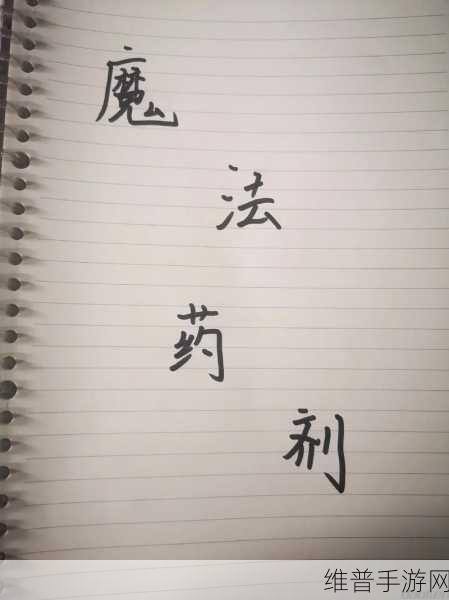 魔
法
药
剂
维普手游网